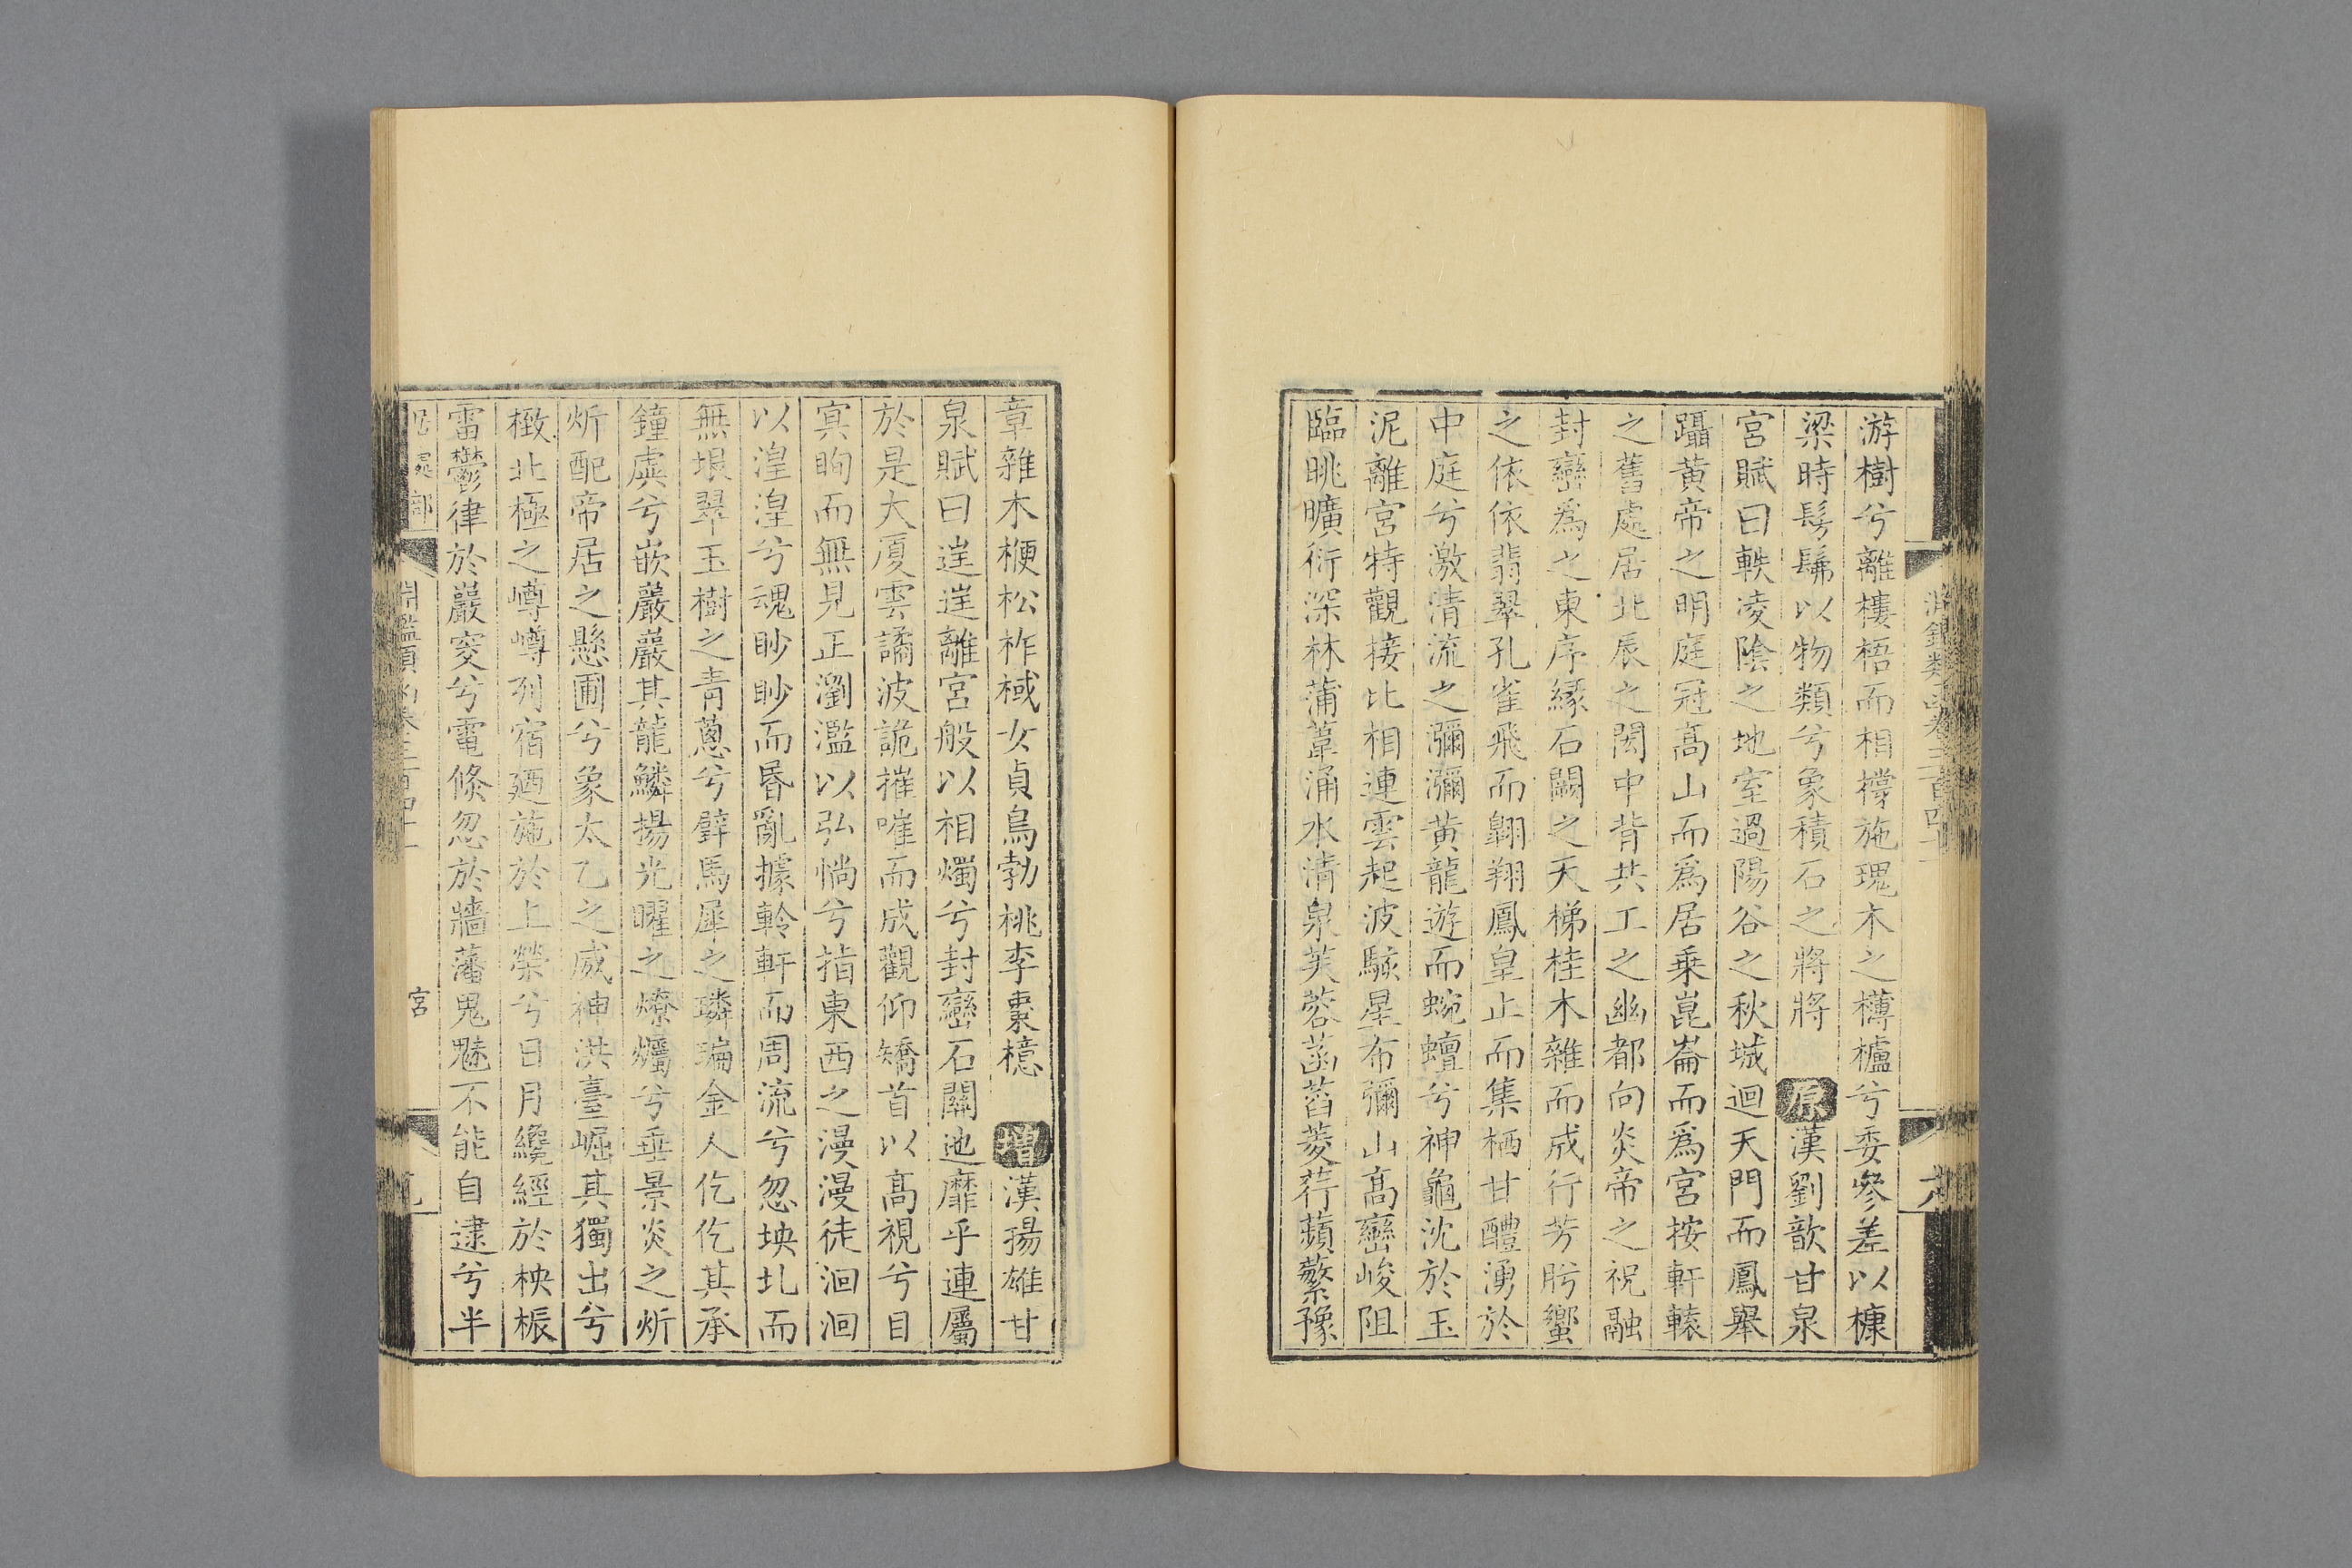 游樹兮離樓梧而相撐施瑰木之欂櫨兮委參差以槺
梁時髣髴以物類兮象積石之將將 原 漢劉歆甘泉
宮賦曰軼凌陰之地室過陽谷之秋城迴天門而鳳舉
躡黃帝之明庭冠高山而爲居乗崑崙而爲宮按軒轅
之舊處居北辰之閎中背共工之幽都向炎帝之祝融
封巒爲之東序緣石闕之天梯桂木雜而成行芳肹蠁
之依依翡翠孔雀飛而翺翔鳳皇止而集栖甘醴湧於
中庭兮激清流之瀰瀰黃龍遊而蜿蟺兮神龜沈於玉
泥離宮特觀接比相連雲起波駭星布彌山高巒峻阻
臨眺曠衍深林蒲葦涌水清泉芙蓉菡萏菱荇蘋蘩豫
章雜木楩松柞棫女貞烏勃桃李棗檍 增 漢揚雄甘
泉賦曰迋迋離宮般以相燭兮封巒石關迆靡乎連屬
於是大厦雲譎波詭摧嗺而成觀仰矯首以高視兮目
冥眴而無見正瀏濫以弘惝兮指東西之漫漫徒洄洄
以湟湟兮魂眇眇而昬亂據軨軒而周流兮忽坱圠而
無垠翠玉樹之青蔥兮璧馬犀之瞵㻞金人仡仡其承
鐘虡兮嵌巖巖其龍鱗揚光曜之燎爥兮垂景炎之炘
炘配帝居之懸圃兮象太乙之威神洪臺崛其獨出兮
㨖北極之嶟嶟列宿廼施於上榮兮日月纔經於柍桭
雷鬱律於巖窔兮電倏忽於牆藩鬼魅不能自逮兮半
宮